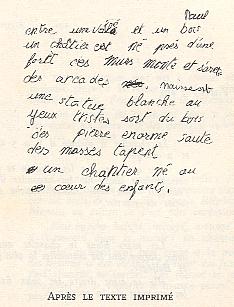 Paul
entre une vallée et un bois
un chatier est né près d'une
forêt ces murs monte et s'arrête
des arcades naissent
une statue blanche au
yeux tristes sort du bois
des pierre enorme saute
des masses tapent
un chantier né au
cœur des enfants.
APRÈS LE TEXTE IMPRIMÉ